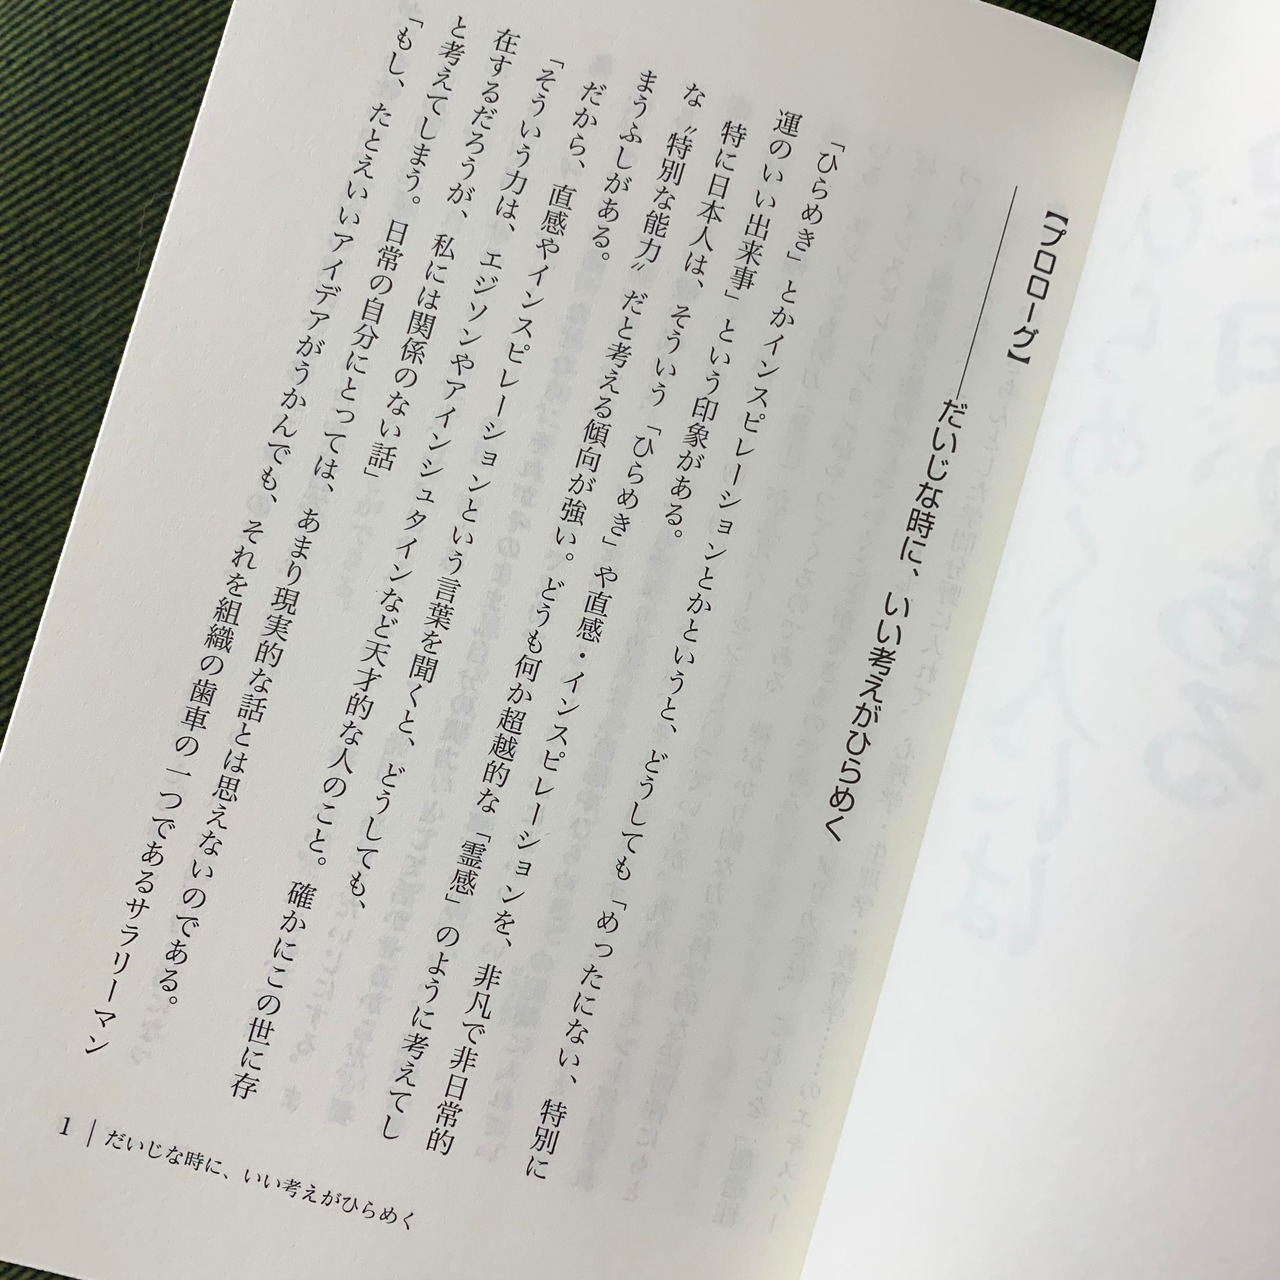 【プロローグ】
――だいじな時に、いい考えがひらめく
「ひらめき」とかインスピレーションとかというと、どうしても「めったにない、特別に
運のいい出来事」という印象がある。
特に日本人は、そういう「ひらめき」や直感・インスピレーションを、非凡で非日常的
な〝特別な能力〟だと考える傾向が強い。どうも何か超越的な「霊感」のように考えてし
まうふしがある。
だから、直感やインスピレーションという言葉を聞くと、どうしても、
「そういう力は、エジソンやアインシュタインなど天才的な人のこと。確かにこの世に存
在するだろうが、私には関係のない話」
と考えてしまう。日常の自分にとっては、あまり現実的な話とは思えないのである。
「もし、たとえいいアイデアがうかんでも、それを組織の歯車の一つであるサラリーマン
1 | だいじな時に、いい考えがひらめく